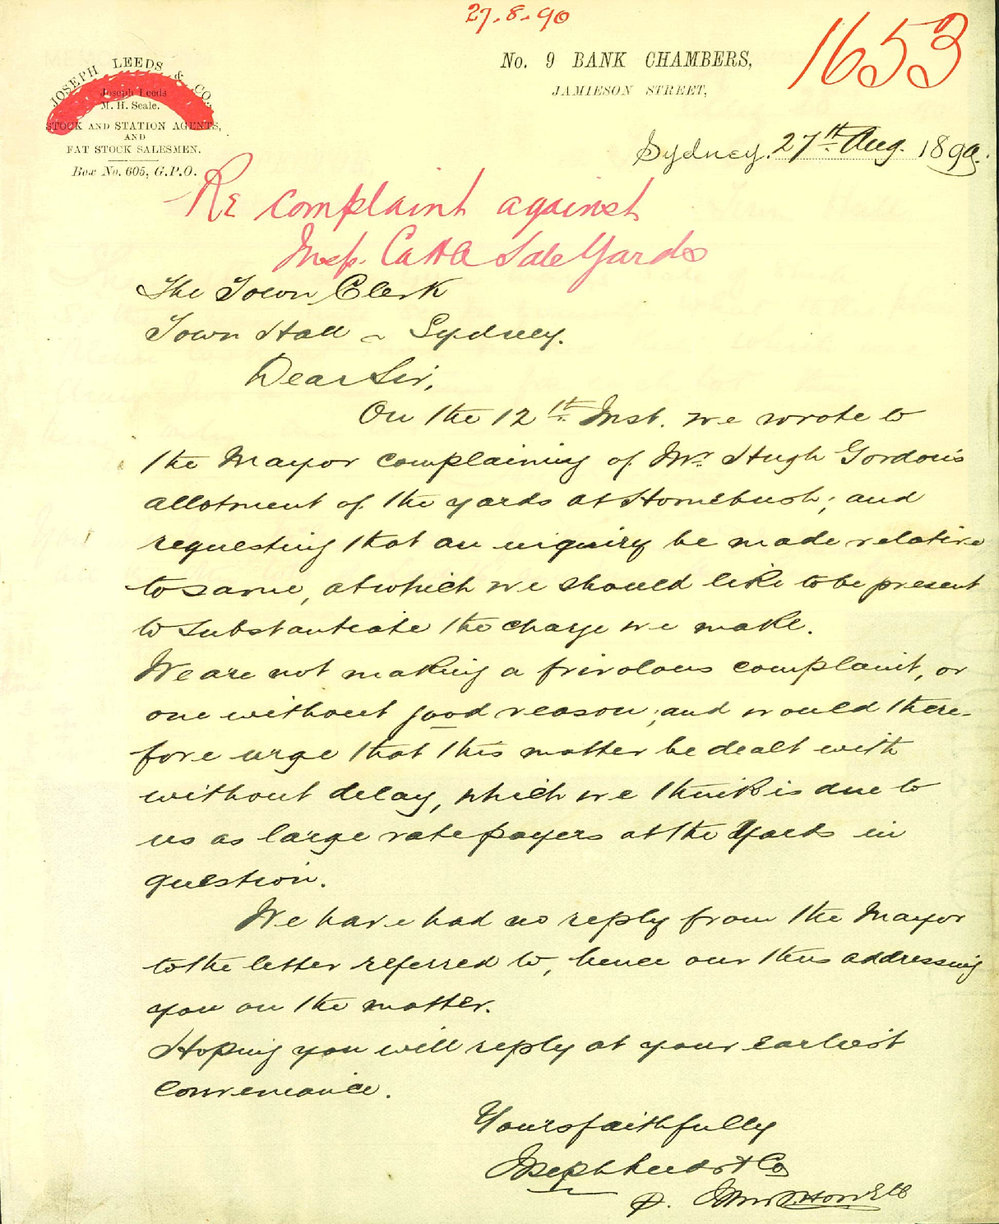 27.8.90
1653
No. 9 BANK CHAMBERS,
JAMIESON STREET,
JOSEPH LEEDS & CO.
Joseph Leeds
M. H. Seale.
STOCK AND STATION AGENTS,
AND
FAT STOCK SALESMEN.
Box No. 605, G.P.O.
Sydney. 27th Aug. 1890.
Re complaint against
Insp. Cattle Sale Yards
The Town Clerk
Town Hall ~ Sydney.
Dear Sir,
On the 12th Inst. we wrote to
the Mayor complaining of Mr. Hugh Gordon's
allotment of the yards at Homebush; and
requesting that an inquiry be made relative
to same, at which we should like to be present
to substantiate the charge we make.
We are not making a frivolous complaint, or
one without good reason; and would there-
fore urge that this matter be dealt with
without delay, which we think is due to
us as large ratepayers at the Yards in
question.
We have had no reply from the Mayor
to the letter referred to, hence our thus addressing
you on the matter.
Hoping you will reply at your earliest
convenience.
Yours faithfully
Joseph Leeds & Co
p.